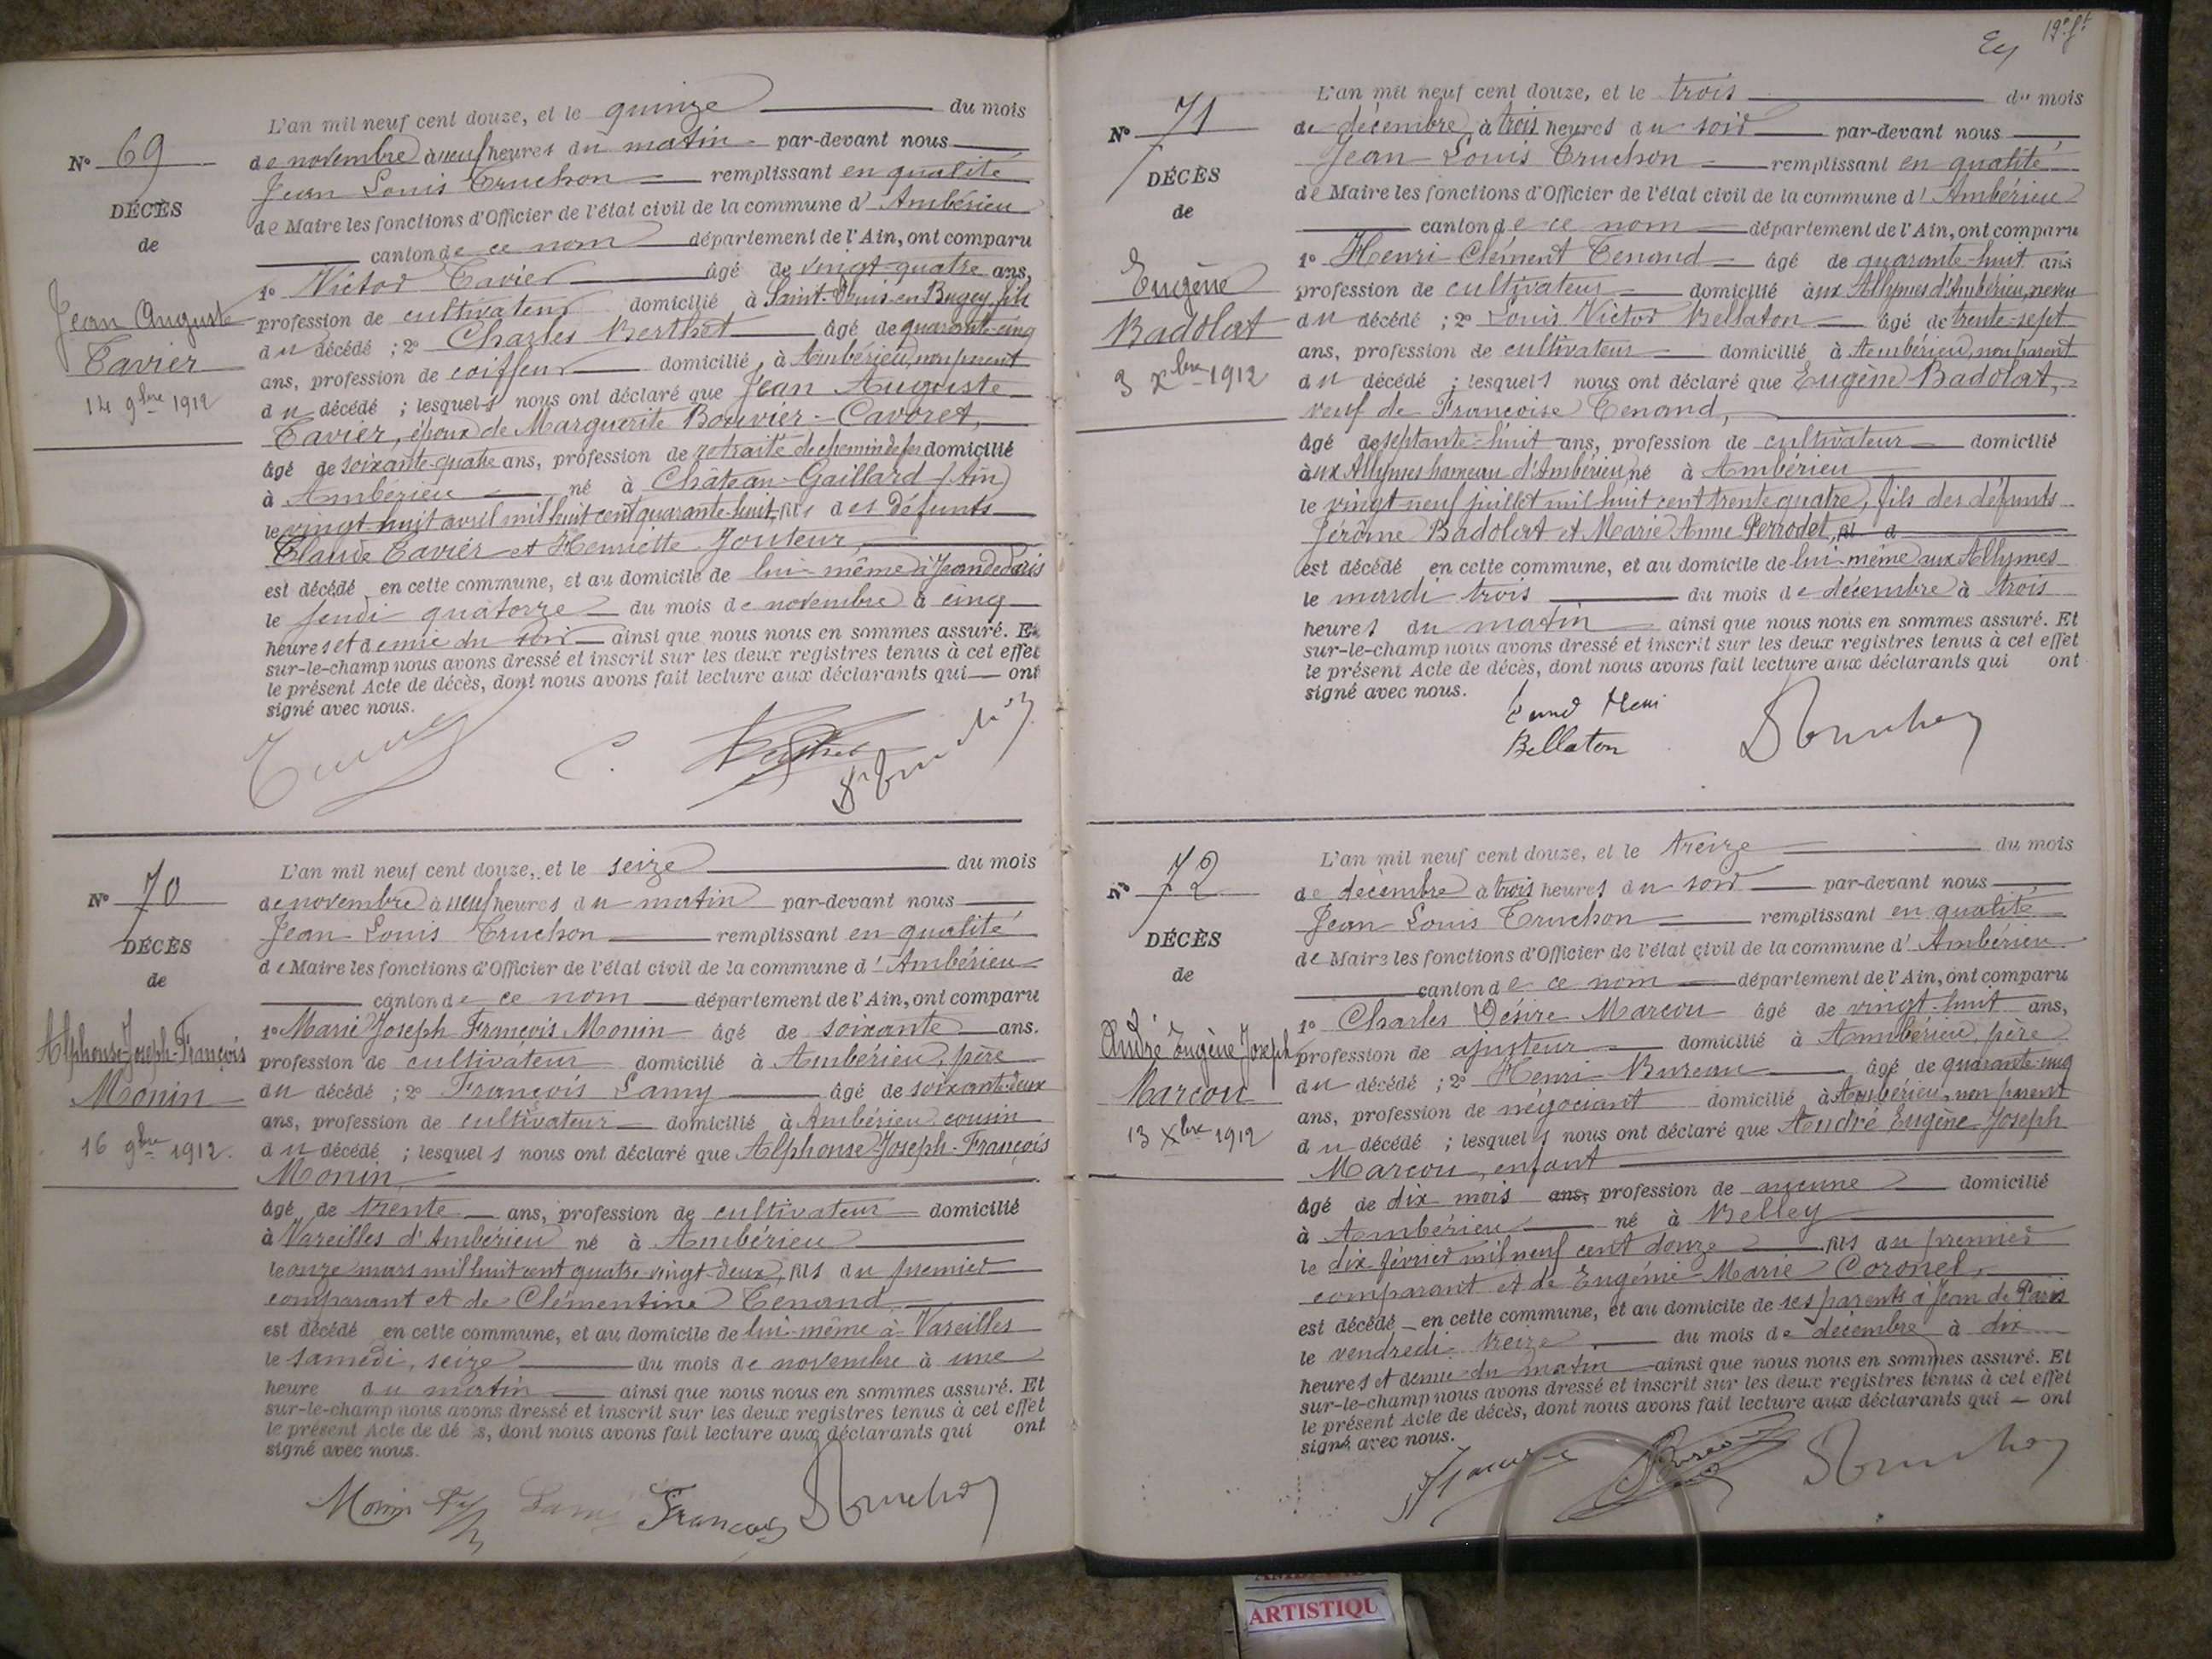 N° 69
DÉCÈS
de
Jean Auguste
Tavier
14 9bre 1912
L'an mil neuf cent douze, et le quinze du mois
de novembre à neuf heures du matin par-devant nous
Jean Louis Truchon remplissant en qualité
de Maire les fonctions d'Officier de l'état civil de la commune d'Ambérieu
canton de ce nom département de l'Ain, ont comparu
1° Victor Tavier âgé de vingt-quatre ans,
profession de cultivateur domicilié à Saint-Denis en Bugey, fils
du décédé ; 2° Charles Berthet âgé de quarante-cinq
ans, profession de coiffeur domicilié à Ambérieu, non parent
du décédé ; lesquels nous ont déclaré que Jean Auguste
Tavier, époux de Marguerite Bouvier-Cavoret,
âgé de soixante-quatre ans, profession de retraité de chemin de fer domicilié
à Ambérieu né à Château-Gaillard (Ain)
le vingt huit avril mil huit cent quarante-huit, fils des défunts
Claude Tavier et Henriette Jouteur,
est décédé en cette commune, et au domicile de lui-même à Jean de Paris
le jeudi quatorze du mois de novembre à cinq
heures et demie du soir ainsi que nous nous en sommes assuré. Et
sur-le-champ nous avons dressé et inscrit sur les deux registres tenus à cet effet
le présent Acte de décès, dont nous avons fait lecture aux déclarants qui ont
signé avec nous.
N° 70
DÉCÈS
de
Alphonse-Joseph-François
Monin
16 9bre 1912.
L'an mil neuf cent douze, et le seize du mois
de novembre à neuf heures du matin par-devant nous
Jean Louis Truchon remplissant en qualité
de Maire les fonctions d'Officier de l'état civil de la commune d'Ambérieu
canton de ce nom département de l'Ain, ont comparu
1° Marie Joseph François Monin âgé de soixante ans.
profession de cultivateur domicilié à Ambérieu, père
du décédé ; 2° François Lamy âgé de soixante-deux
ans, profession de cultivateur domicilié à Ambérieu cousin
du décédé ; lesquels nous ont déclaré que Alphonse-Joseph-François
Monin,
âgé de trente ans, profession de cultivateur domicilié
à Vareilles d'Ambérieu né à Ambérieu
le onze mars mil huit cent quatre vingt-deux, fils du premier
comparant et de Clémentine Tenand,
est décédé en cette commune, et au domicile de lui-même à Vareilles
le samedi, seize du mois de novembre à une
heure du matin ainsi que nous nous en sommes assuré. Et
sur-le-champ nous avons dressé et inscrit sur les deux registres tenus à cet effet
le présent Acte de dé s, dont nous avons fait lecture aux déclarants qui ont
signé avec nous.
Monin François Truchon
19e ft
N° 71
DÉCÈS
de
Eugène
Badolat
3 Xbre 1912
L'an mil neuf cent douze, et le trois du mois
de décembre, à trois heures du soir par-devant nous
Jean-Louis Truchon remplissant en qualité
de Maire les fonctions d'Officier de l'état civil de la commune d'Ambérieu
canton de ce nom département de l'Ain, ont comparu
1° Henri-Clément Tenand âgé de quarante-huit ans
profession de cultivateur domicilié aux Allymes d'Ambérieu, neveu
du décédé ; 2° Louis Victor Bellaton âgé de trente-sept
ans, profession de cultivateur domicilié à Ambérieu, non parent
du décédé ; lesquels nous ont déclaré que Eugène Badolat,
veuf de Françoise Tenand,
âgé de septante-huit ans, profession de cultivateur domicilié
aux Allymes hameau d'Ambérieu né à Ambérieu
le vingt neuf juillet mil huit cent trente quatre, fils des défunts
Jérôme Badolat et Marie Anne Perrodet,
est décédé en cette commune, et au domicile de lui-même aux Allymes
le mardi trois du mois de décembre à trois
heures du matin ainsi que nous nous en sommes assuré. Et
sur-le-champ nous avons dressé et inscrit sur les deux registres tenus à cet effet
le présent Acte de décès, dont nous avons fait lecture aux déclarants qui ont
signé avec nous.
Tenand Henri
Bellaton Truchon
N° 72
DÉCÈS
de
André Eugène Joseph
Marcou
13 Xbre 1912
L'an mil neuf cent douze, et le treize du mois
de décembre à trois heures du soir par-devant nous
Jean Louis Truchon remplissant en qualité
de Maire les fonctions d'Officier de l'état civil de la commune d'Ambérieu
canton de ce nom département de l'Ain, ont comparu
1° Charles Désiré Marcou âgé de vingt-huit ans,
profession de ajusteur domicilié à Ambérieu, père
du décédé ; 2° Henri Bureau âgé de quarante-cinq
ans, profession de négociant domicilié à Ambérieu, non parent
du décédé ; lesquels nous ont déclaré que André Eugène Joseph
Marcou, enfant
âgé de dix mois ans, profession de aucune domicilié
à Ambérieu né à Belley
le dix février mil neuf cent douze fils du premier
comparant et de Eugénie Marie Coronel,
est décédé en cette commune, et au domicile de ses parents à Jean de Paris
le vendredi treize du mois de décembre à dix
heures et demie du matin ainsi que nous nous en sommes assuré. Et
sur-le-champ nous avons dressé et inscrit sur les deux registres tenus à cet effet
le présent Acte de décès, dont nous avons fait lecture aux déclarants qui ont
signé avec nous.
Truchon
ARTISTIQU